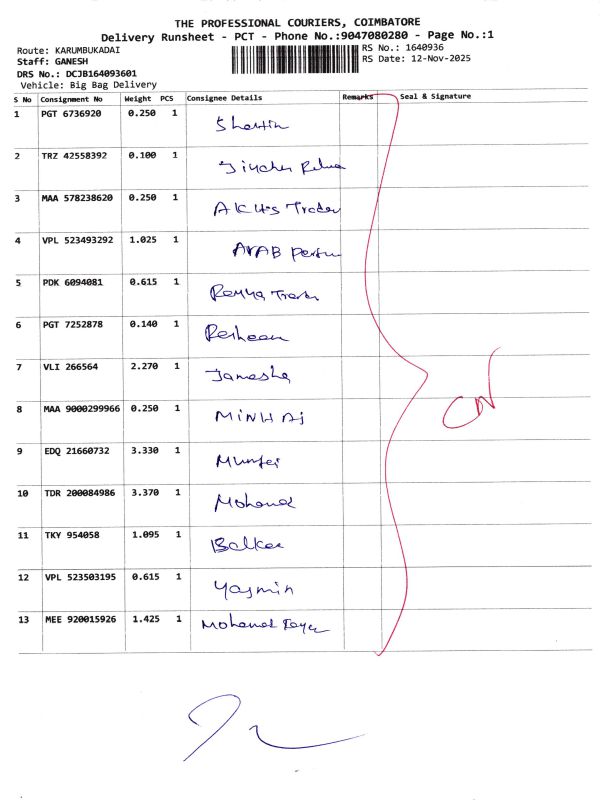 THE PROFESSIONAL COURIERS, COIMBATORE
Delivery Runsheet - PCT - Phone No.:9047080280 - Page No.:1
Route: KARUMBUKADAI
RS No.: 1640936
Staff: GANESH
RS Date: 12-Nov-2025
DRS No.: DCJB164093601
Vehicle: Big Bag Delivery
S No Consignment No Weight PCS Consignee Details Remarks Seal & Signature
1 PGT 6736920 0.250 1
2 TRZ 42558392 0.100 1
3 MAA 578238620 0.250 1
4 VPL 523493292 1.025 1 ARAB
5 PDK 6094081 0.615 1
6 PGT 7252878 0.140 1
7 VLI 266564 2.270 1 Jamesha
8 MAA 9000299966 0.250 1 MINHAJ
9 EDQ 21660732 3.330 1
10 TDR 200084986 3.370 1 Mohamed
11 TKY 954058 1.095 1
12 VPL 523503195 0.615 1 Yasmin
13 MEE 920015926 1.425 1 Mohamed